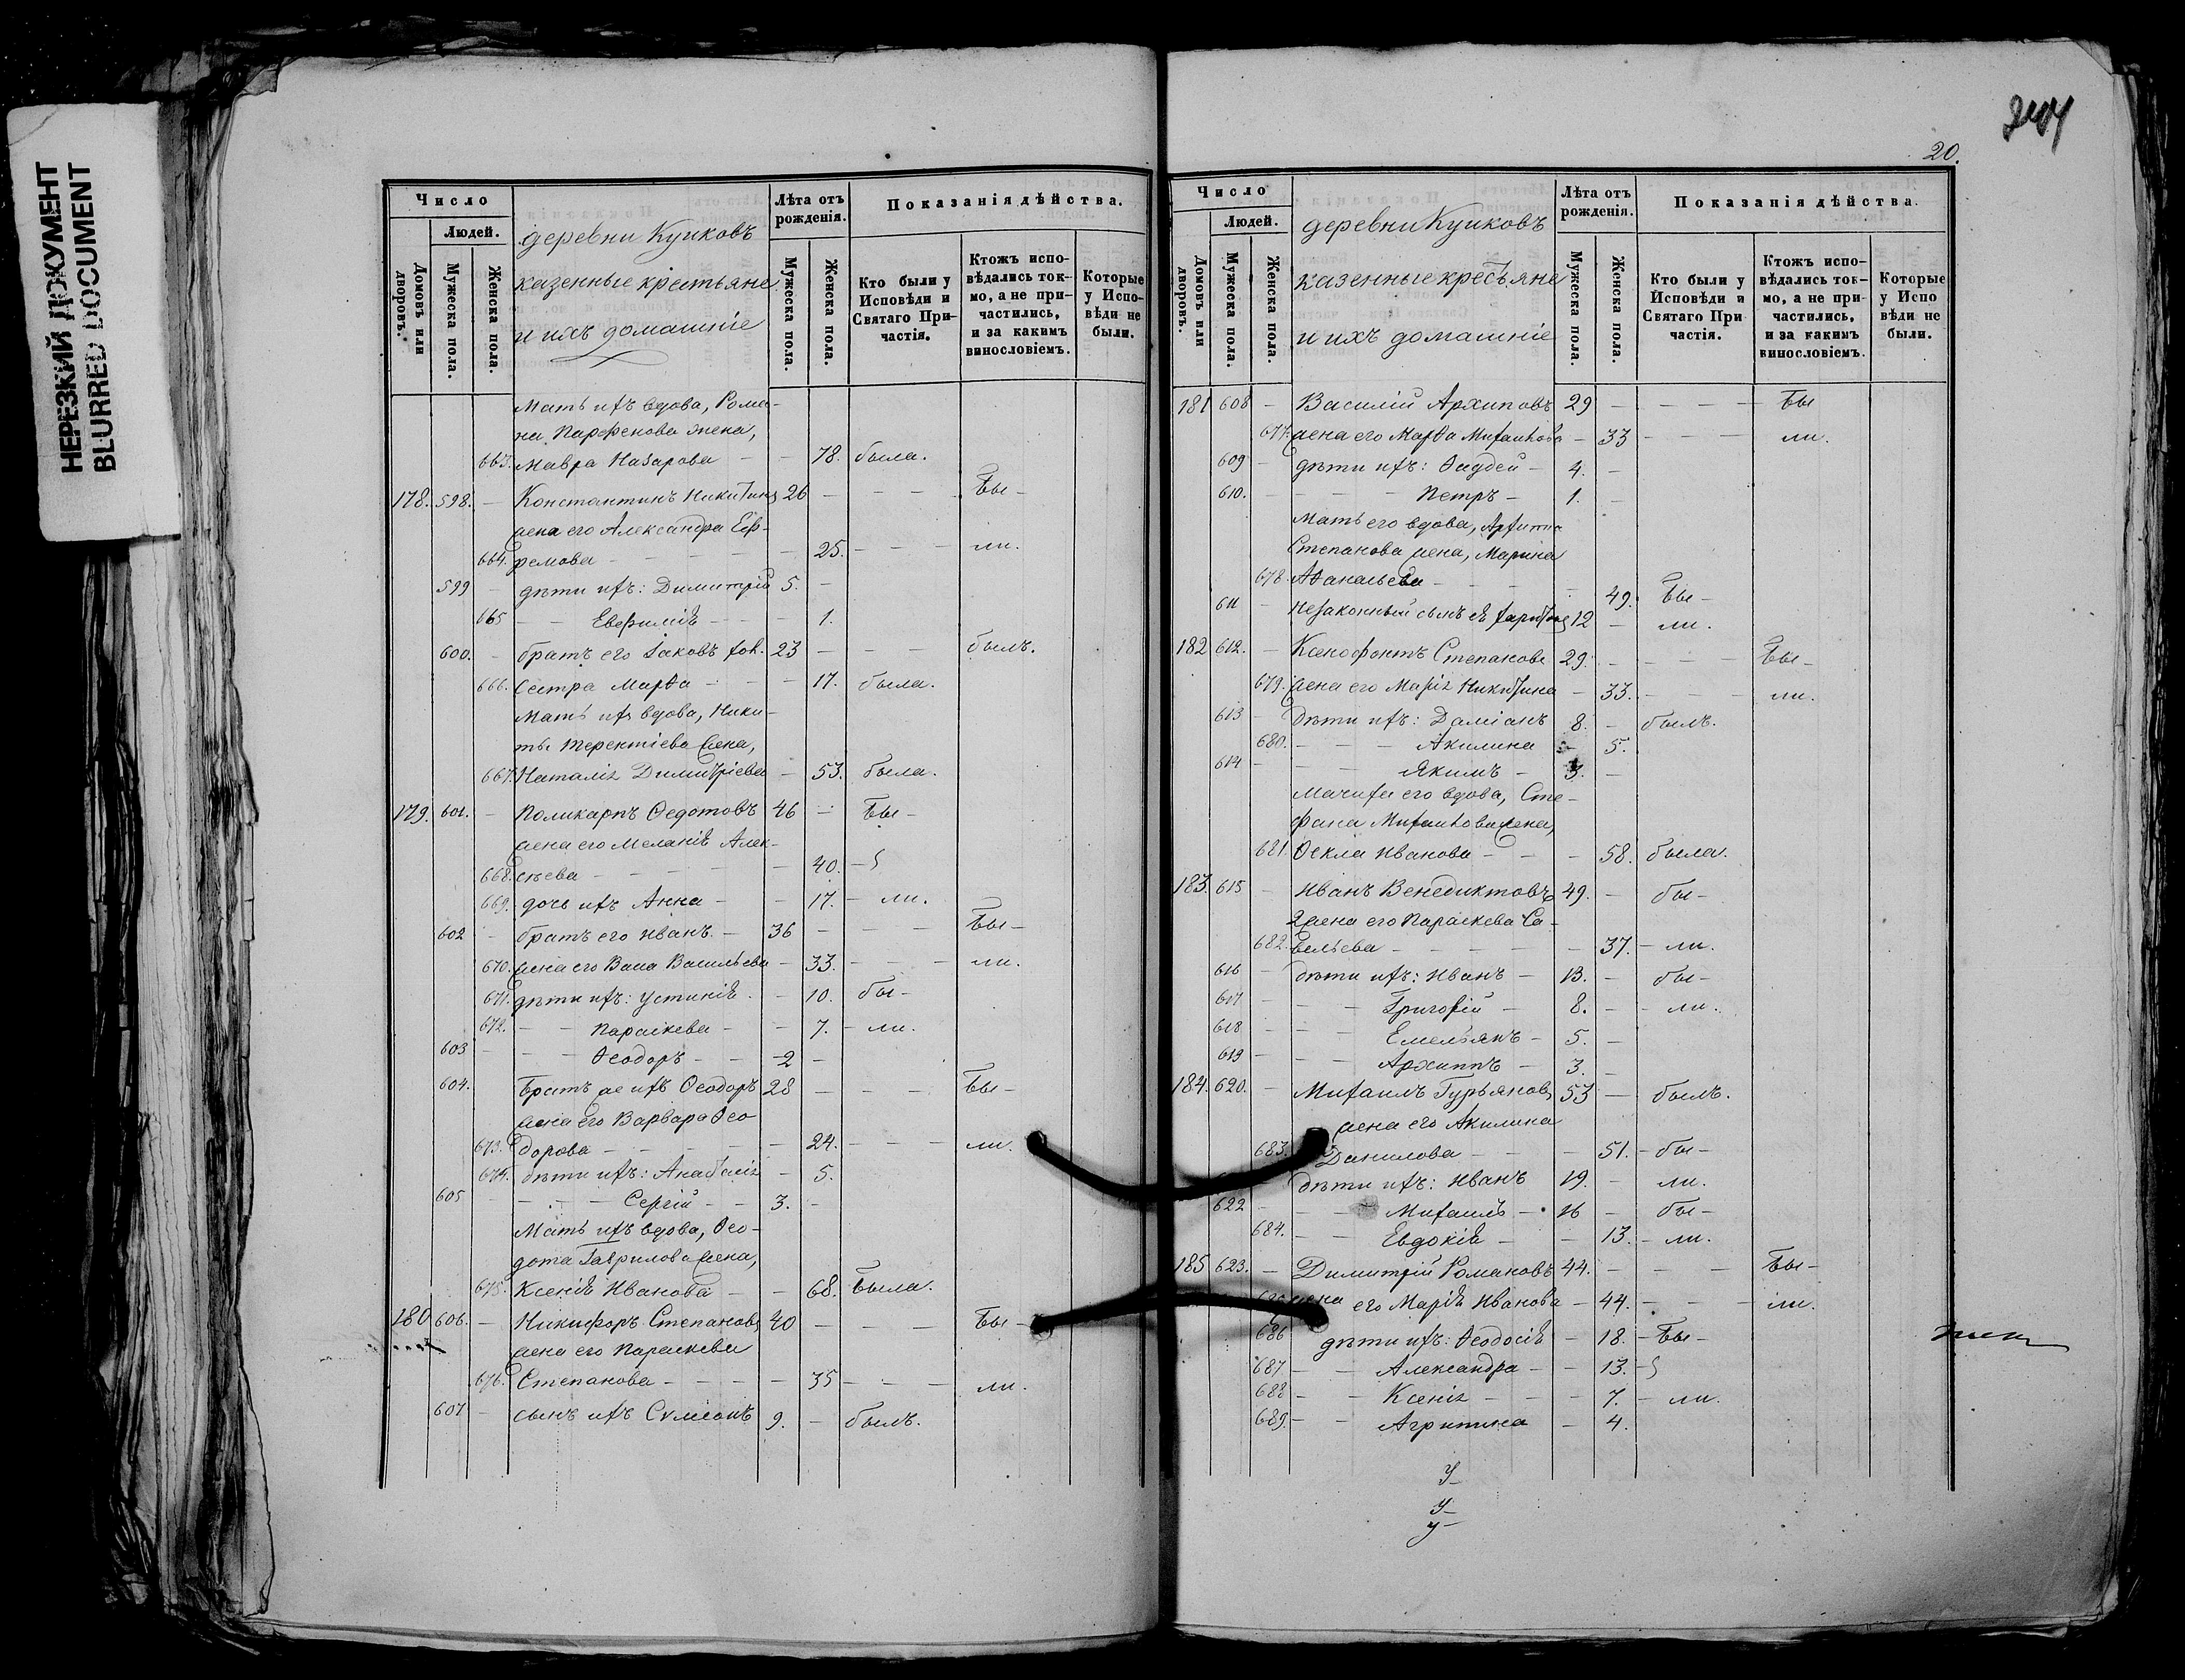 НЕРЕЗКИЙ ДОКУМЕНТ
BLURRED DOCUMENT
Число
Людей.
Домовъ или дворовъ.
Мужеска пола.
Женска пола.
деревни Кучковъ
казенные крестьяне
и ихъ домашніе
Лѣта отъ рожденія.
Мужеска пола.
Женска пола.
Показанія дѣйства.
Кто были у Исповѣди и Святаго Причастія.
Ктожъ исповѣдались токмо, а не причастились, и за какимъ винословіемъ.
Которые у Исповѣди не были.
Мать ихъ вдова, Рома-
на Парфенова жена,
663. Мавра Назарова - - 78. была.
178. 598. - Константинъ Никитинъ 26 - - - - Бы-
жена его Александра Еф-
664. ремова - - - - - 25. - - - ли.
599 - дѣти ихъ: Димитрій 5. -
665 - - Евфимія - - - 1.
600. - братъ его Іаковъ хол. 23 - - - - былъ.
666. Сестра Марѳа - - - 17. была.
Мать ихъ вдова, Ники-
ты Терентіева жена,
667. Наталія Димитріева - 53. была.
179. 601. - Поликарпъ Ѳедотовъ 46 - Бы-
жена его Меланія Алек-
668. сѣева - - - - - 40. -
669. дочь ихъ Анна - - 17. - ли.
602 - братъ его Иванъ - 36 - - - - Бы-
670. жена его Васса Васильева - 33. - - - ли.
671. дѣти ихъ: Устинія - - 10. бы-
672. - - Параскева - - 7. - ли.
603 - - - Ѳеодоръ - - 2 -
604. Братъ же ихъ Ѳеодоръ 28 - - - - Бы-
жена его Варвара Ѳео-
673. дорова - - - - - 24. - - - ли.
674. дѣти ихъ: Анастасія - 5.
605 - - - Сергій - - 3. -
Мать ихъ вдова, Ѳео-
дота Гаврилова жена,
675. Ксенія Иванова - - 68. Была.
180 606. - Никифоръ Степановъ 40 - - - Бы-
жена его Параскева
676. Степанова - - - - - 35 - - - ли.
607 - сынъ ихъ Сѵмеонъ 9. - былъ.
20.
Число
Людей.
Домовъ или дворовъ.
Мужеска пола.
Женска пола.
деревни Кучковъ
казенные кресьяне
и ихъ домашніе
Лѣта отъ рожденія.
Мужеска пола.
Женска пола.
Показанія дѣйства.
Кто были у Исповѣди и Святаго Причастія.
Ктожъ исповѣдались токмо, а не причастились, и за какимъ винословіемъ.
Которые у Исповѣди не были.
181 608 - Василій Архиповъ 29 - - - - Бы
677. жена его Марѳа Михайлова - 33 - - - ли.
609 - дѣти ихъ: Ѳаддей - 4. -
610. - - - - Петръ - 1. -
Мать его вдова, Архипа
Степанова жена, Марина
678. Аѳанасьева - - - - 49. Бы-
611 - Незаконный сынъ ея Харитонъ 12 - ли.
182 612. - Ксенофонтъ Степановъ 29. - - - - Бы-
679. жена его Марія Никитина - 33. - - - ли.
613 - дѣти ихъ: Даміанъ 8. - былъ.
680. - - - Акилина - 5.
614 - - - Якимъ - 3. -
Мачиха его вдова, Сте-
фана Михайлова жена,
681. Ѳекла Иванова - - - 58. была.
183. 615 - Иванъ Венедиктовъ 49. - бы-
2 жена его Параскева Са-
682. вельева - - - - - 37. - ли.
616 - дѣти ихъ: Иванъ - 13. - бы-
617 - - - Григорій - 8. - - ли.
618 - - - Емельянъ - 5. -
619 - - - Архиппъ - 3. -
184. 620. - Михаилъ Гурьяновъ 53 - былъ.
жена его Акилина
683. Данилова - - - 51. - бы-
дѣти ихъ: Иванъ 19. - ли.
622 - - - Михаилъ - 16 - бы-
684. - - Евдокія - - 13. - ли.
185 623. - Димитрій Романовъ 44. - - - - Бы-
жена его Марія Иванова - 44. - - - ли.
686 дѣти ихъ: Ѳеодосія - 18. - Бы-
687 - - Александра - - 13. -
688 - - Ксенія - - - 7. - ли.
689. - - Агрипина - 4.